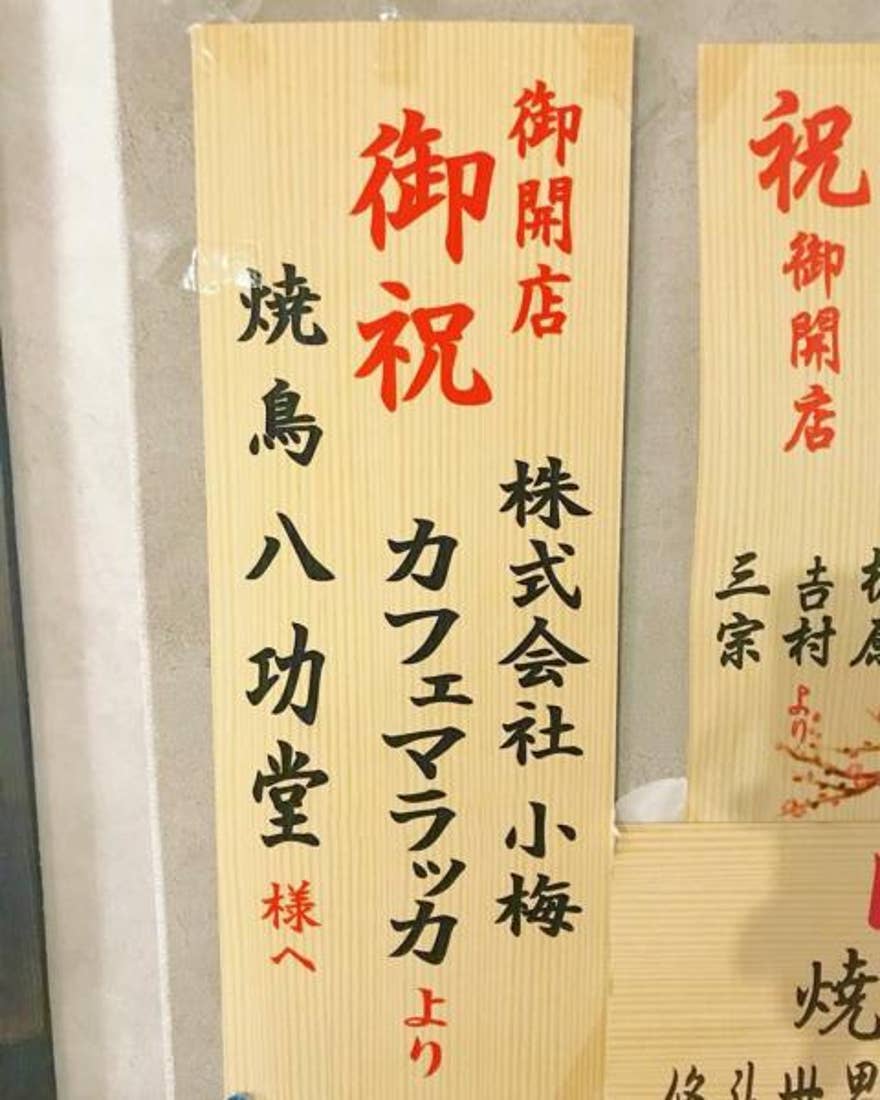 御開店
御祝
株式会社 小梅
カフェマラッカ より
焼鳥 八功堂 様へ
祝
御開店
吉村 より
三宗
焼